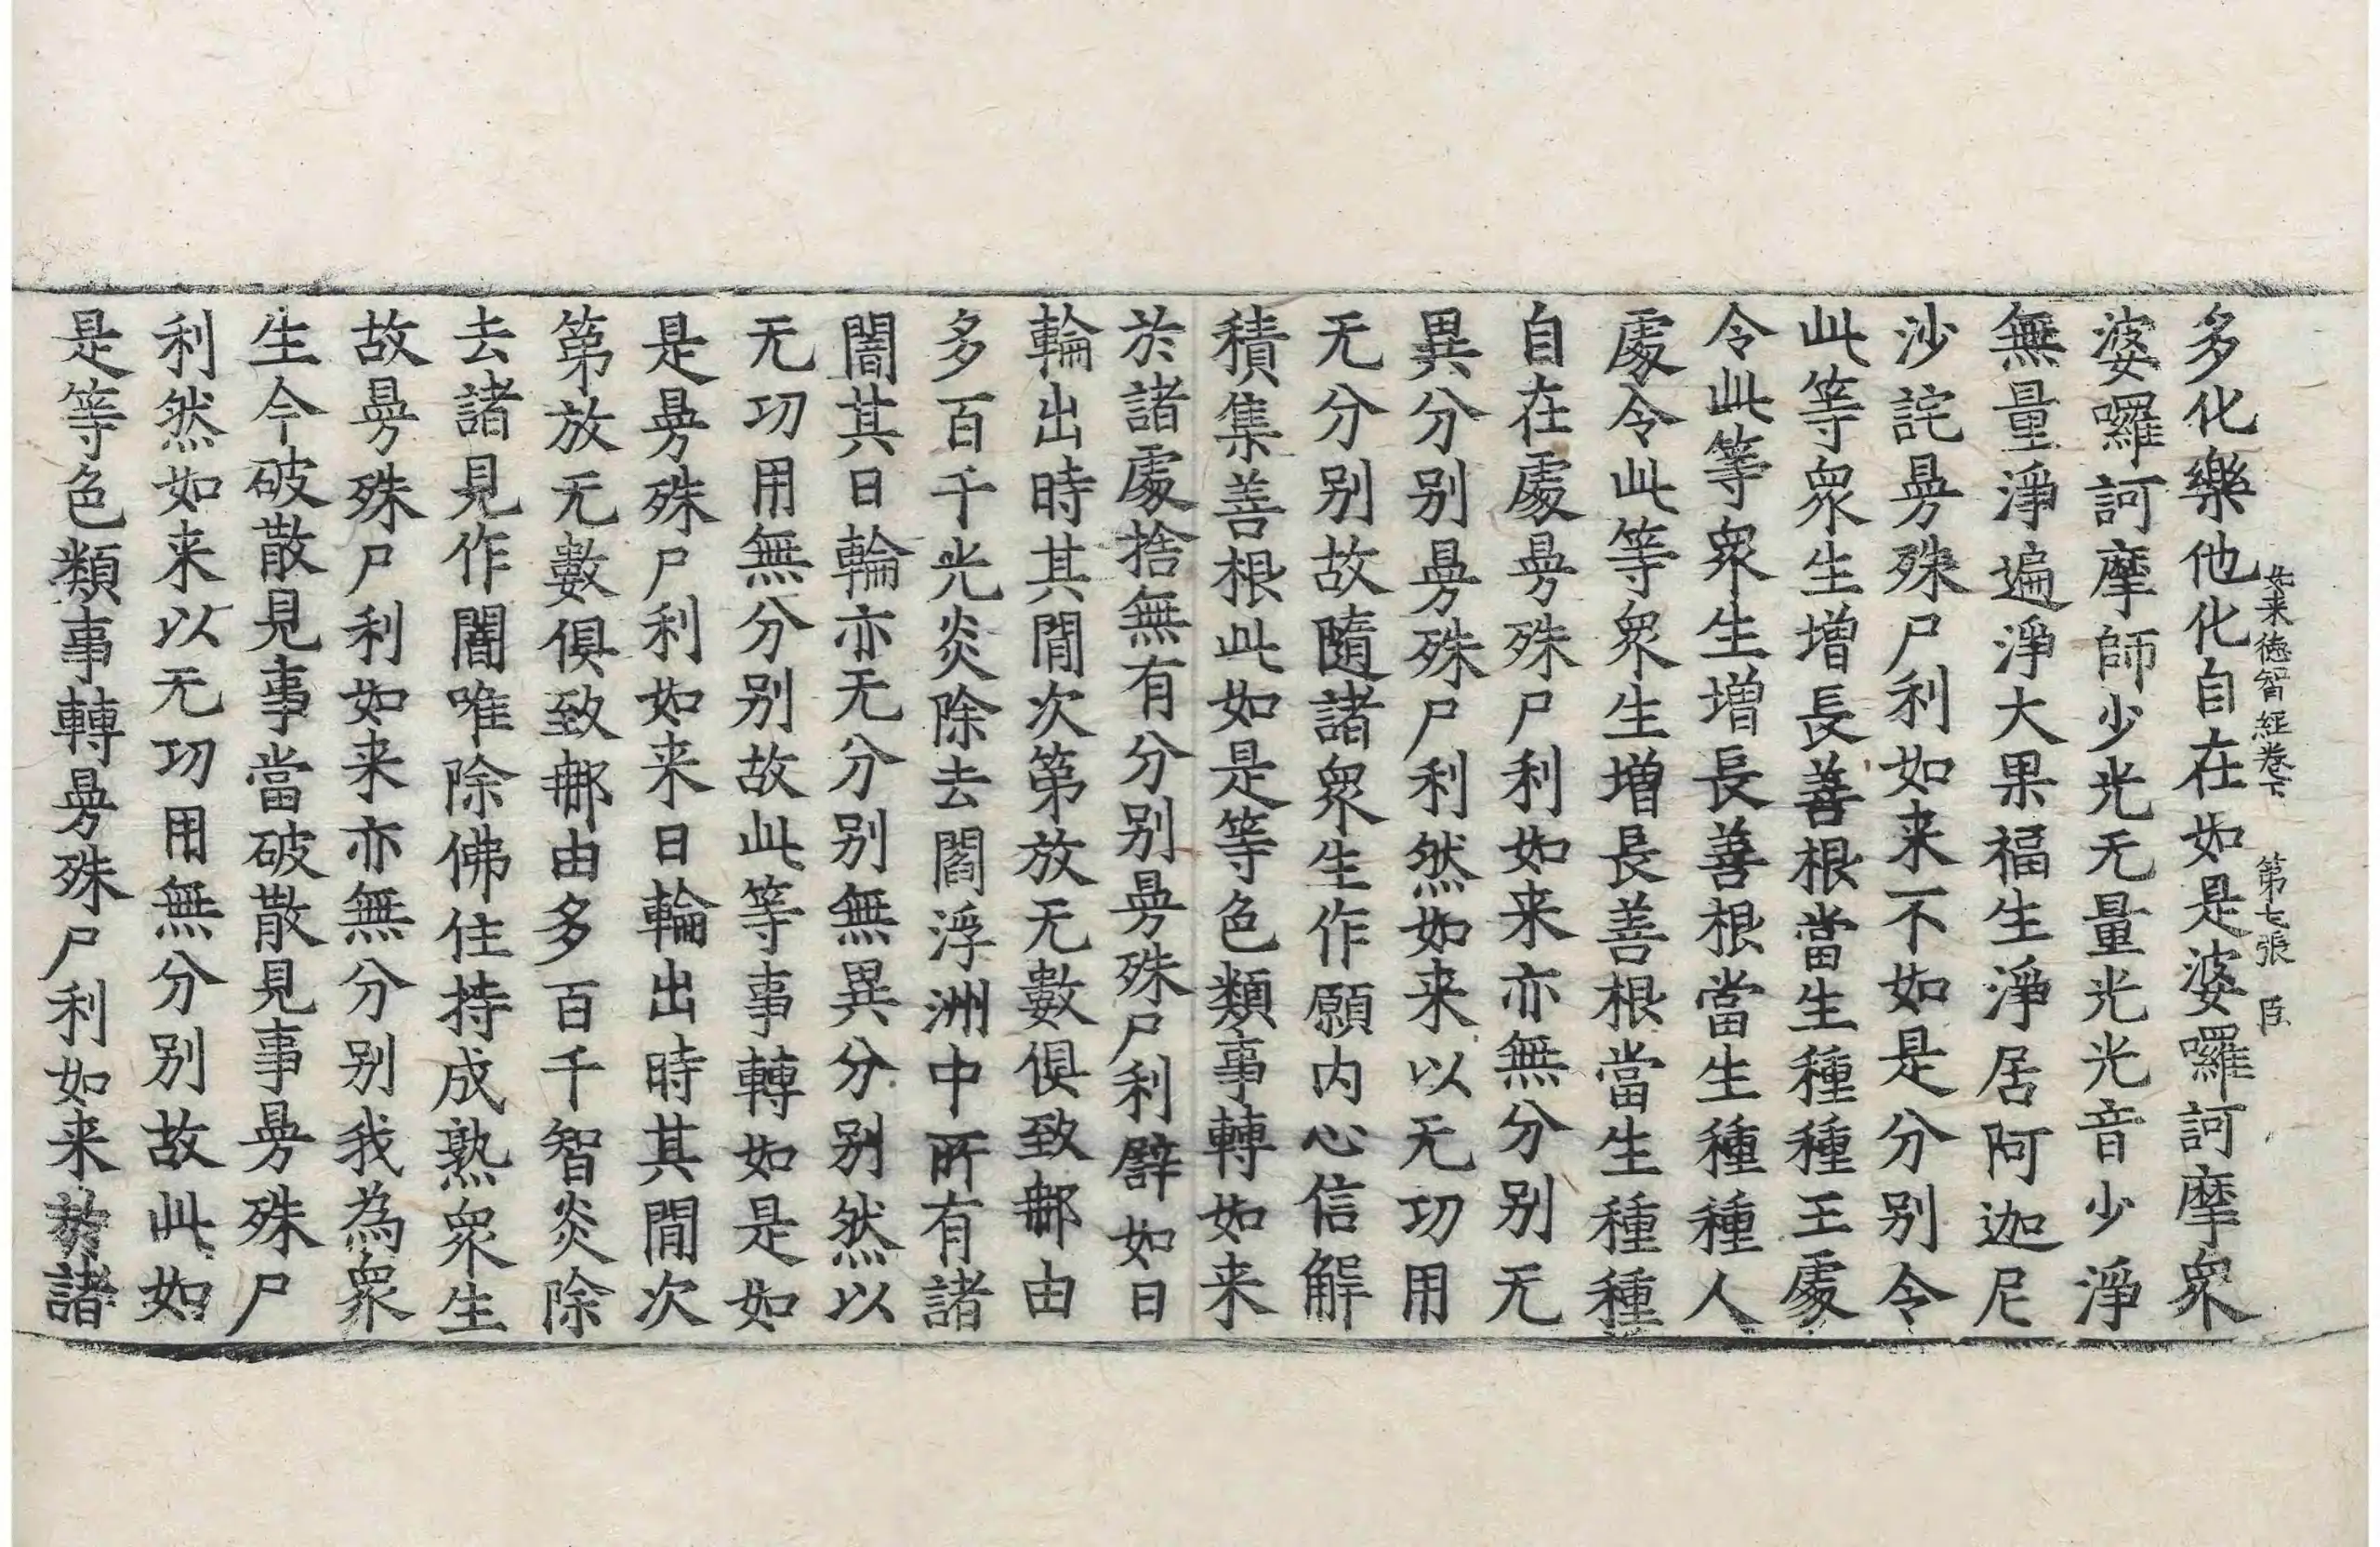 如来德智經卷下　第七張　臣
多化樂他化自在如是婆囉訶摩衆
婆囉訶摩師少光无量光光音少淨
無量淨遍淨大果福生淨居阿迦尼
沙詫㬅殊尸利如来不如是分别令
此等衆生增長善根當生種種王處
令此等衆生增長善根當生種種人
處令此等衆生增長善根當生種種
自在處㬅殊尸利如来亦無分别无
異分别㬅殊尸利然如来以无功用
无分别故隨諸衆生作願内心信解
積集善根此如是等色類事轉如来
於諸處捨無有分别㬅殊尸利譬如日
輪出時其間次第放无數俱致𨙻由
多百千光炎除去閻浮洲中所有諸
闇其日輪亦无分别無異分别然以
无功用無分别故此等事轉如是如
是㬅殊尸利如来日輪出時其間次
第放无數俱致𨙻由多百千智炎除
去諸見作闇唯除佛住持成熟衆生
故㬅殊尸利如来亦無分别我為衆
生今破散見事當破散見事㬅殊尸
利然如来以无功用無分别故此如
是等色類事轉㬅殊尸利如来於諸